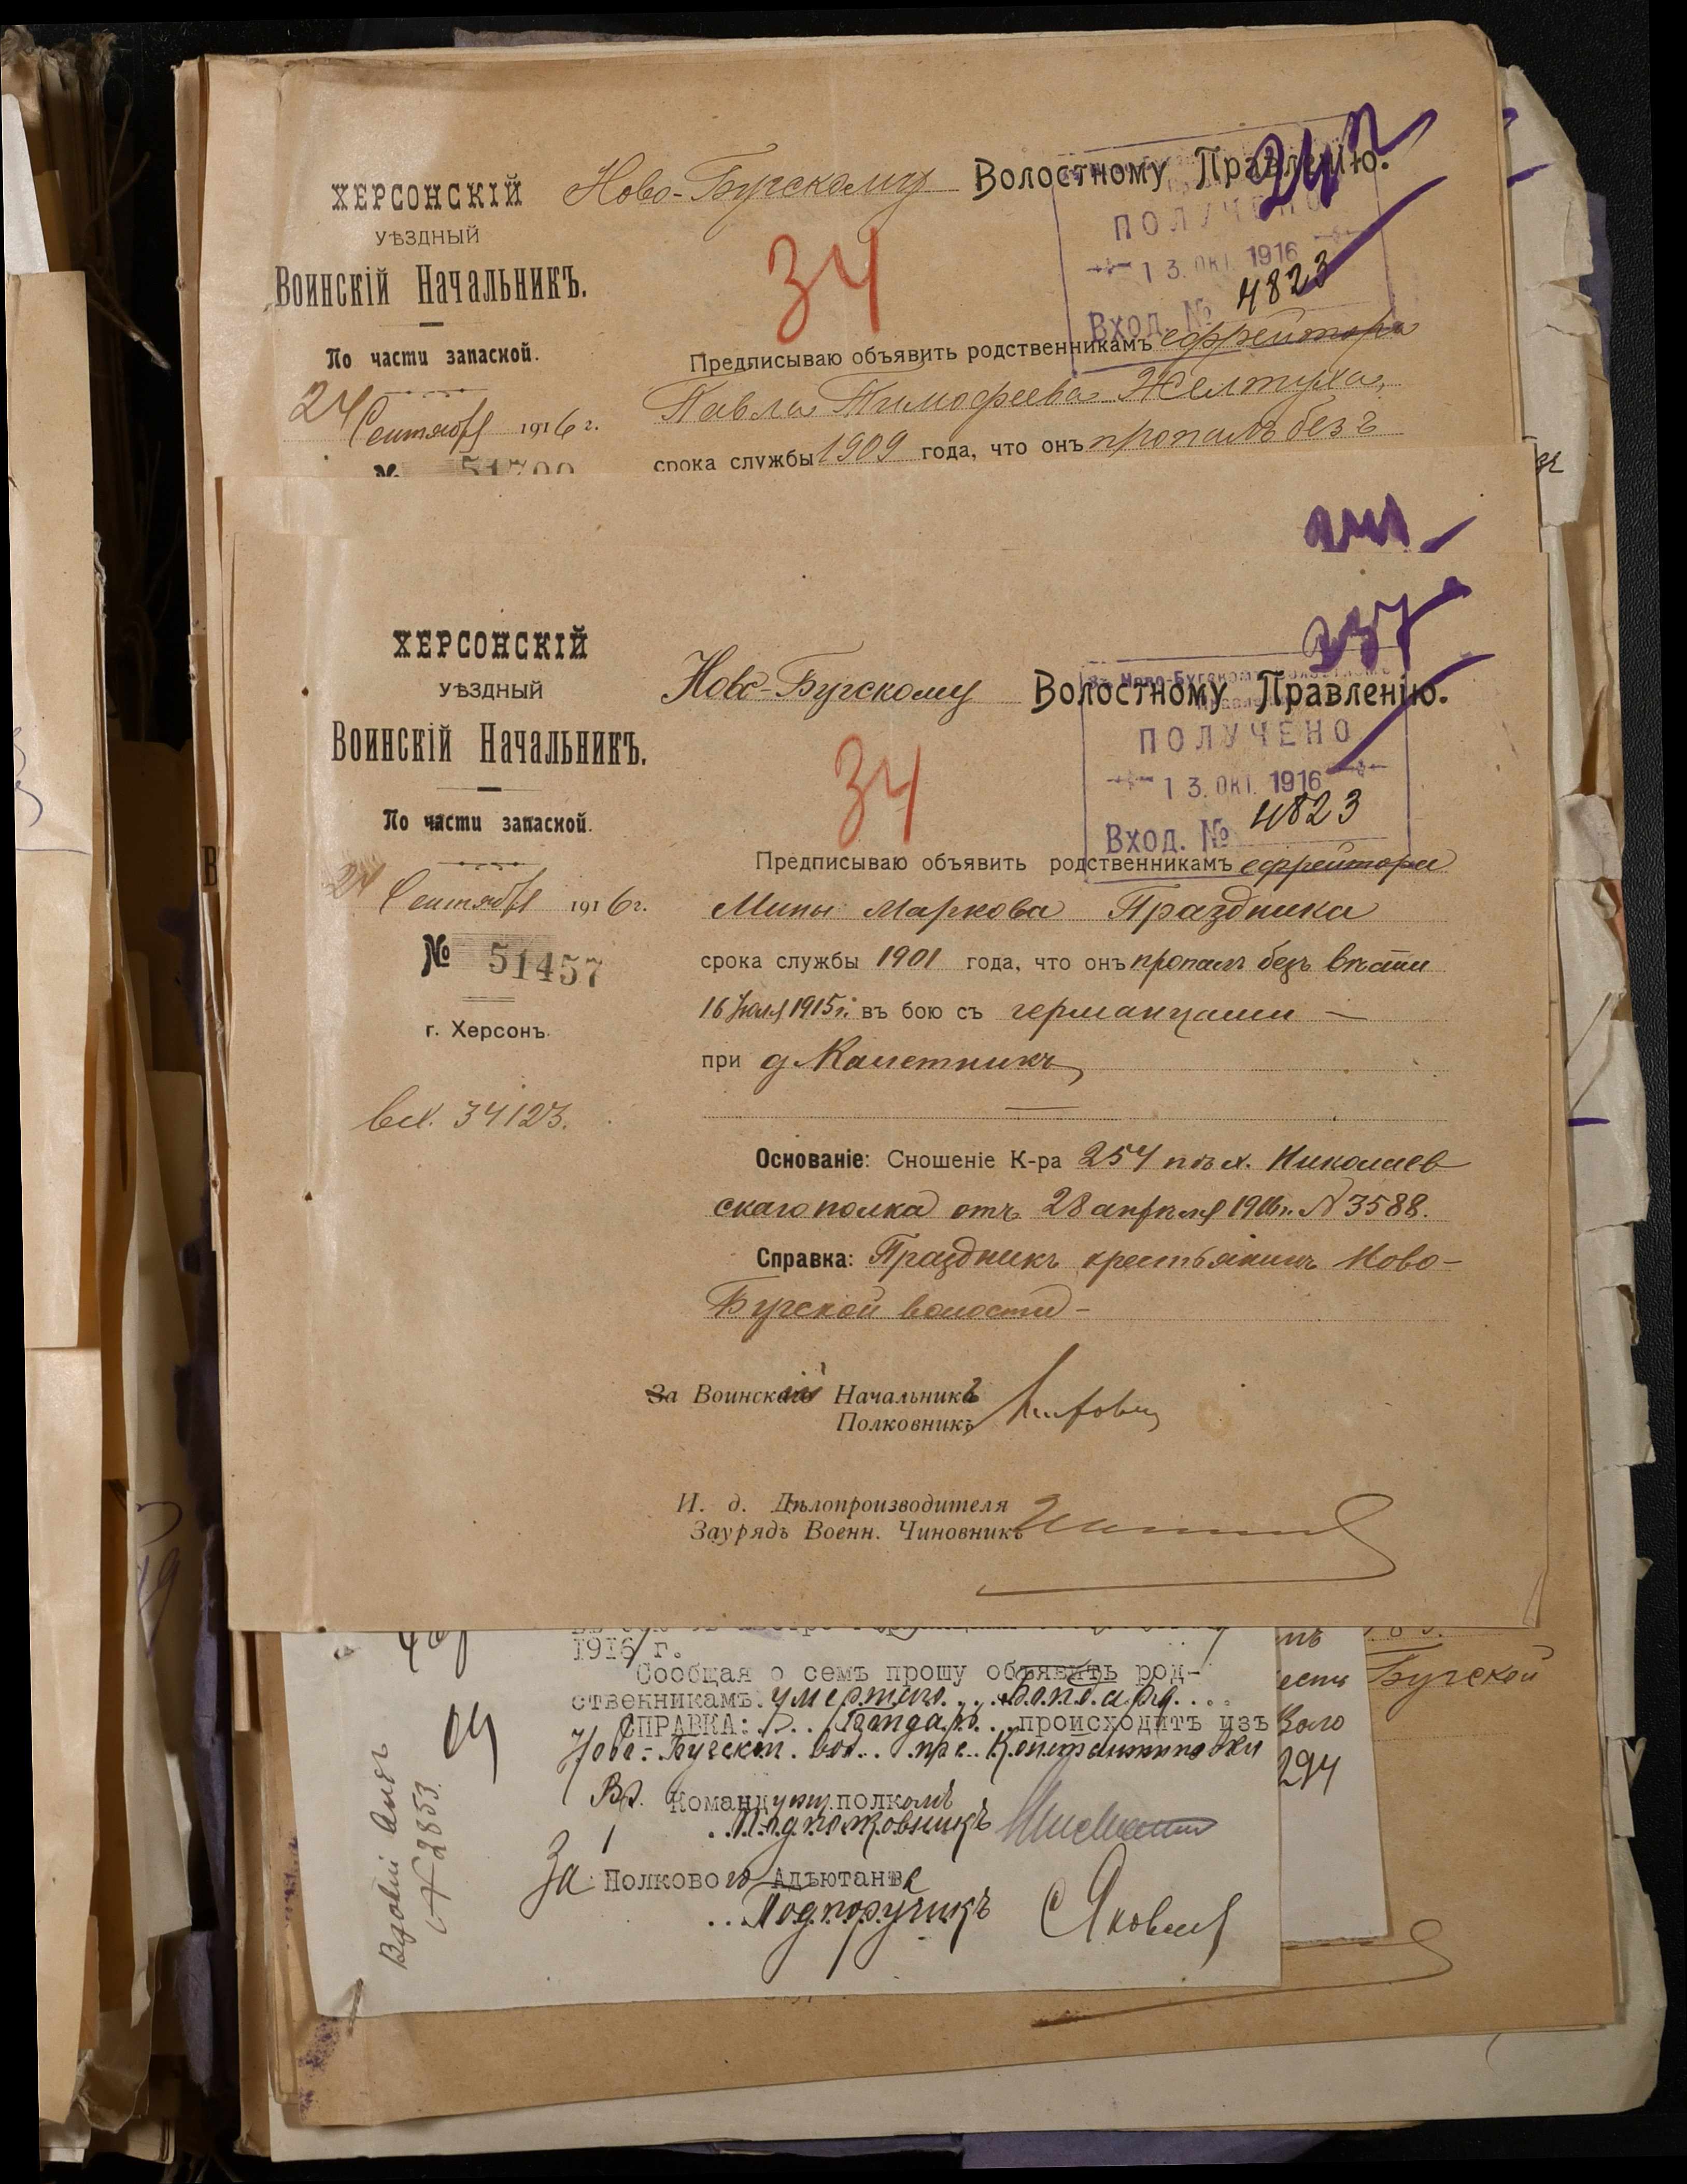 ХЕРСОНСКІЙ
УѢЗДНЫЙ
Воинскій Начальникъ.
По части запасной.
24 Сентября 1916 г.
№ 51700
Ново-Бугскому Волостному Правленію.
34
ПОЛУЧЕНО
13. ОКТ. 1916
Вход. № 4823
Предписываю объявить родственникамъ ефрейтора
Павла Тимофеева Желтуха,
срока службы 1909 года, что онъ пропалъ безъ
241
237
ХЕРСОНСКІЙ
УѢЗДНЫЙ
Воинскій Начальникъ.
По части запасной.
24 Сентября 1916 г.
№ 51457
г. Херсонъ.
вх. 34123.
Ново-Бугскому Волостному Правленію.
34
ПОЛУЧЕНО
13. ОКТ. 1916
Вход. № 4823
Предписываю объявить родственникамъ ефрейтора
Мины Маркова Праздника
срока службы 1901 года, что онъ пропалъ безъ вѣсти
16 Іюля 1915 г. въ бою съ германцами —
при д.
Основаніе: Сношеніе К-ра 254 пѣх. Николаев
скаго полка отъ 28 апрѣля 1916 г. № 3588.
Справка: Праздникъ крестьянинъ Ново-
Бугской волости –
За Воинскій Начальникъ
Полковникъ
И. д. Дѣлопроизводителя
Заурядъ Военн. Чиновникъ
1916 г.
Сообщая о семъ прошу объявить род-
ственникамъ умершаго Бондаря
СПРАВКА: Бондарь происходитъ изъ
Ново-Бугской вол. Константиновки
Вр. Командующ. полкомъ
Подполковникъ
За Полкового Адъютанта
Подпоручикъ
№ 2853.
Бугской
294